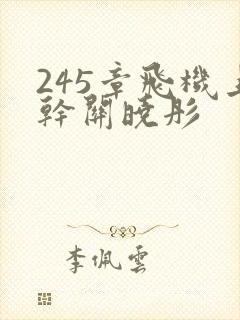 245章飛機
幹關曉彤
李佩雲